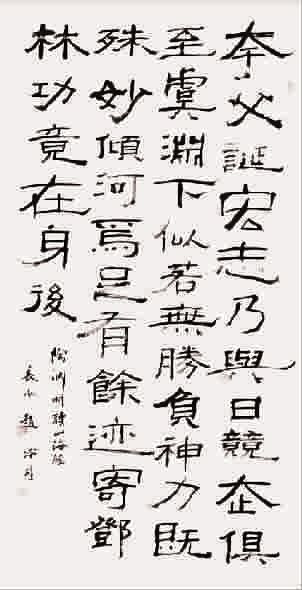 夸父誕宏志乃與日競走俱
至虞淵下似若無勝負神力既
殊妙傾河焉足有餘迹寄鄧
林功竟在身後
陶淵明讀山海經
趙冷月